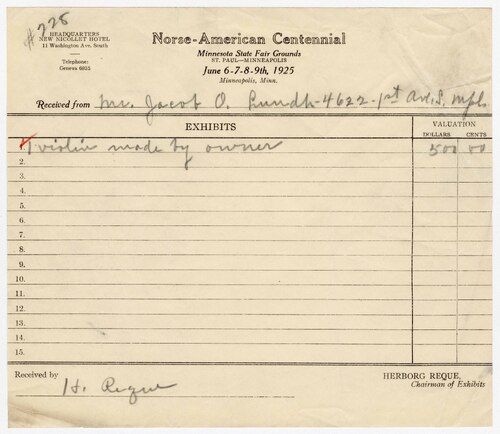 # 728
HEADQUARTERS
NEW NICOLLET HOTEL
11 Washington Ave. South
Telephone:
Geneva 6835
Norse-American Centennial
Minnesota State Fair Grounds
ST. PAUL—MINNEAPOLIS
June 6-7-8-9th, 1925
Minneapolis, Minn.
Received from Mr. Jacob O. Lundh-4622-1st Ave. S. Mpls
EXHIBITS
VALUATION
DOLLARS CENTS
1. 1 violin made by owner 500 00
2.
3.
4.
5.
6.
7.
8.
9.
10.
11.
12.
13.
14.
15.
Received by H. Reque
HERBORG REQUE,
Chairman of Exhibits